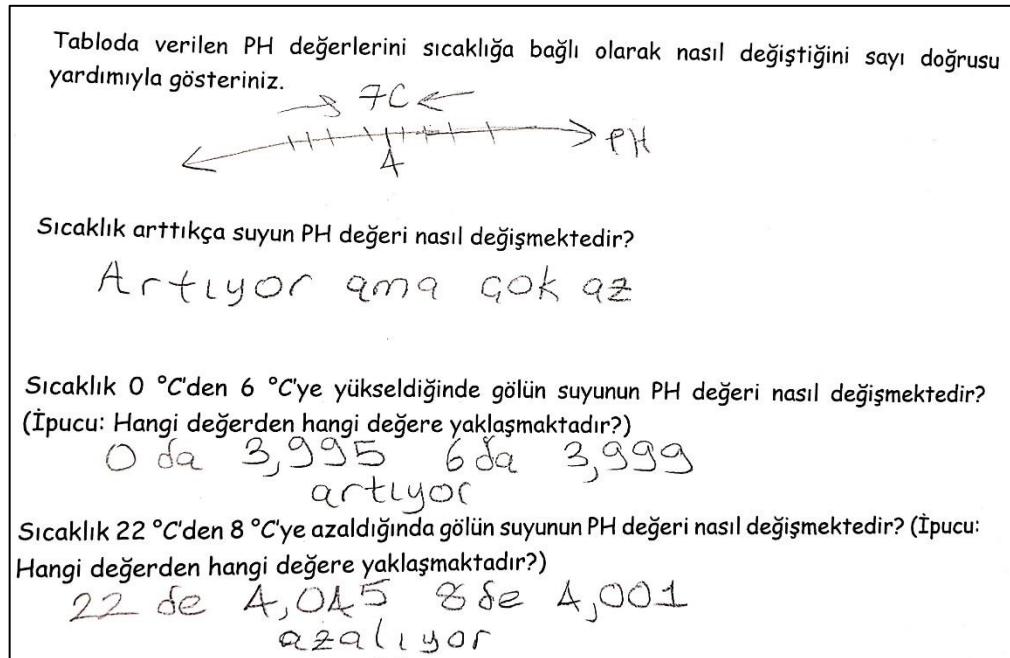 Tabloda verilen PH değerlerini sıcaklığa bağlı olarak nasıl değiştiğini sayı doğrusu
yardımıyla gösteriniz.
7C
4
PH
Sıcaklık arttıkça suyun PH değeri nasıl değişmektedir?
Artıyor ama çok az
Sıcaklık 0 °C'den 6 °C'ye yükseldiğinde gölün suyunun PH değeri nasıl değişmektedir?
(İpucu: Hangi değerden hangi değere yaklaşmaktadır?)
0 da 3,995 6 da 3,999
artıyor
Sıcaklık 22 °C'den 8 °C'ye azaldığında gölün suyunun PH değeri nasıl değişmektedir? (İpucu:
Hangi değerden hangi değere yaklaşmaktadır?)
22 de 4,045 8 de 4,001
azalıyor